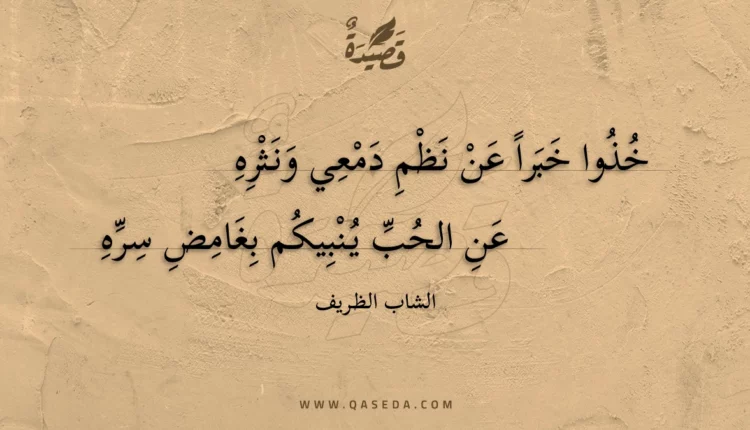 قَصِيدَةٌ
خُذُوا خَبَراً عَنْ نَظْمِ دَمْعِي وَنَثْرِهِ
عَنِ الحُبِّ يُنْبِيكُم بِغَامِضِ سِرِّهِ
الشاب الظريف
WWW.QASEDA.COM